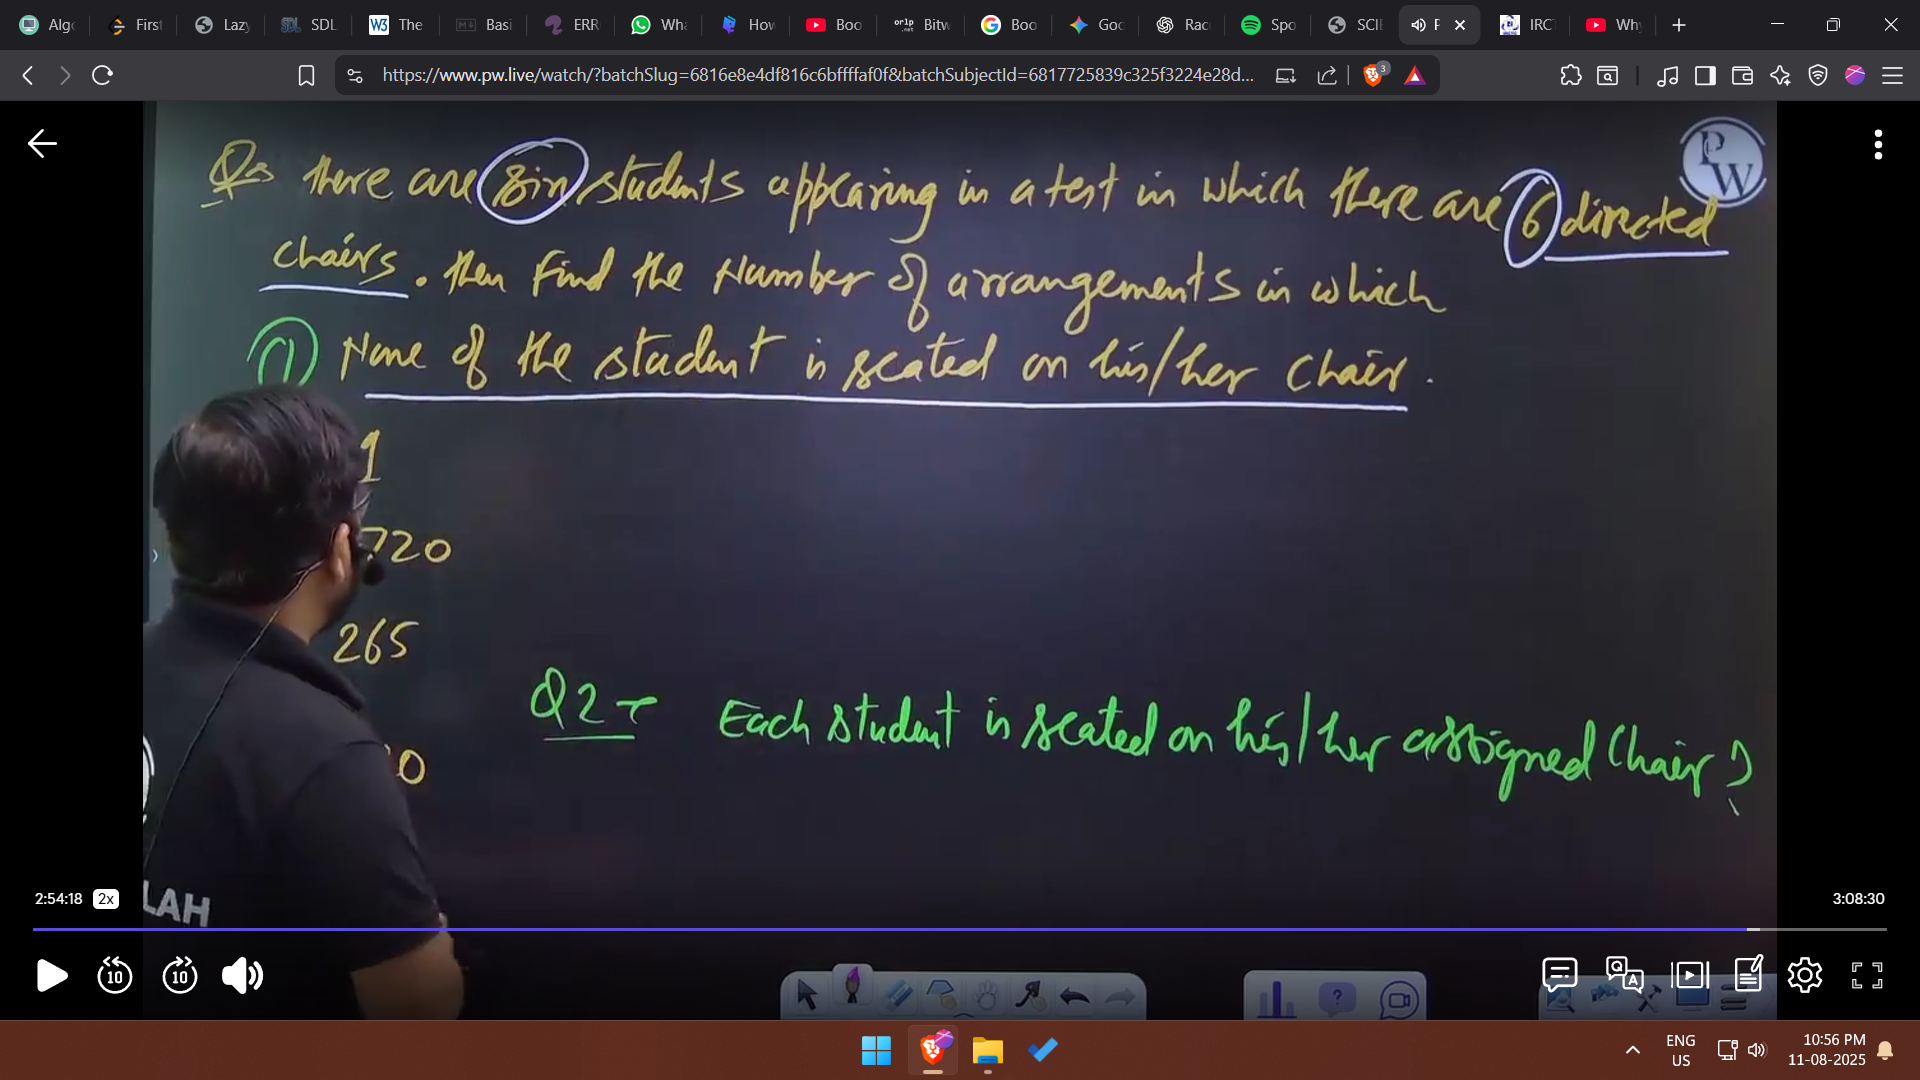 Algo
First
Lazy
SDL
The
Basi
ERR
Wha
How
Boo
Bitw
Boo
Goo
Rac
Spo
SCIE
P
IRCT
Why
https://www.pw.live/watch/?batchSlug=6816e8e4df816c6bffffaf0f&batchSubjectId=6817725839c325f3224e28d...
3
Qs there are six students appearing in a test in which there are 6 directed
PW
chairs. then find the Number of arrangements in which
① None of the student is seated on his/her chair.
1
720
265
Q2 - Each student is seated on his/her assigned chair?
0
2:54:18 2x
3:08:30
LAH
10 10
ENG
US
10:56 PM
11-08-2025